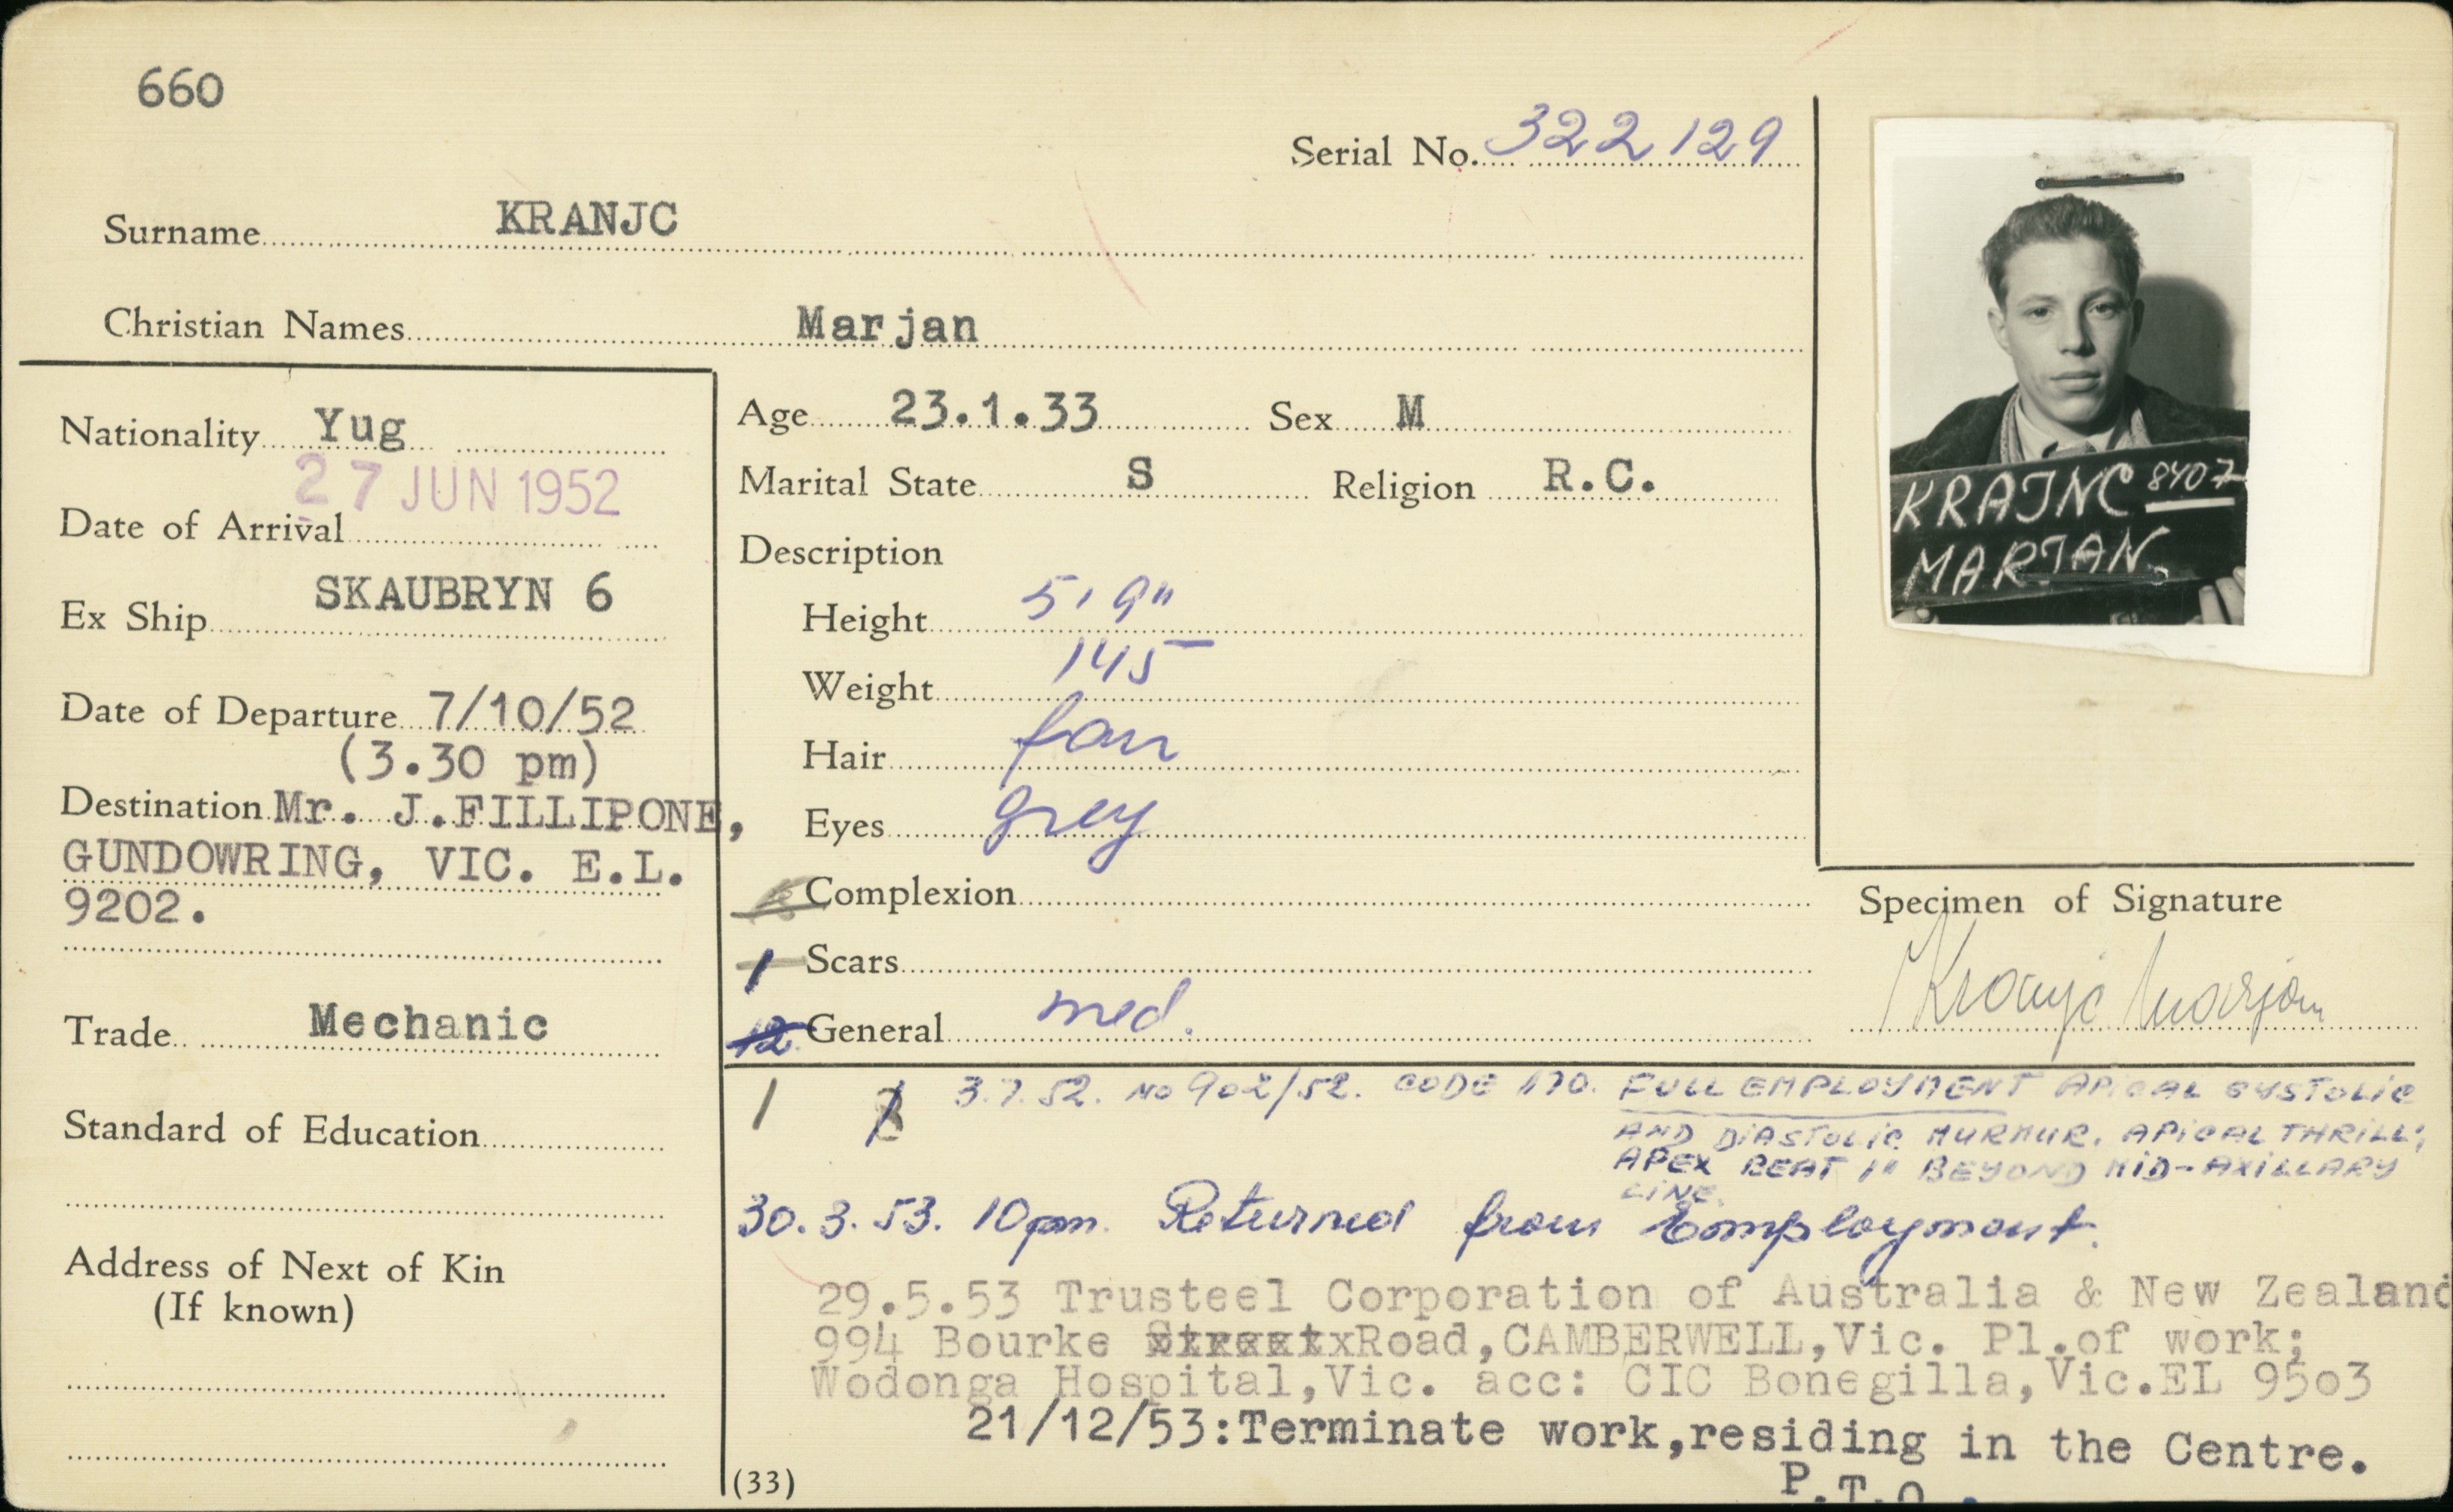 660
Serial No. 322129
Surname KRANJC
Christian Names Marjan
Nationality Yug
27 JUN 1952
Date of Arrival
Ex Ship SKAUBRYN 6
Date of Departure 7/10/52
(3.30 pm)
Destination Mr. J.FILLIPONE,
GUNDOWRING, VIC. E.L.
9202.
Trade Mechanic
Standard of Education
Address of Next of Kin
(If known)
Age 23.1.33 Sex M
Marital State S Religion R.C.
Description
Height 5'9"
Weight 145
Hair fair
Eyes grey
Complexion
1 Scars
12 General med.
KRAJNC 8407
MARJAN
Specimen of Signature
Kranjc Marjan
1 3.7.52. No 902/52. CODE 170. FULL EMPLOYMENT APICAL SYSTOLIC
AND DIASTOLIC MURMUR. APICAL THRILL;
APEX BEAT 1" BEYOND MID-AXILLARY
LINE.
30.3.53. 10pm. Returned from Employment.
29.5.53 Trusteel Corporation of Australia & New Zealand
994 Bourke Street Road,CAMBERWELL,Vic. Pl.of work;
Wodonga Hospital,Vic. acc: CIC Bonegilla,Vic.EL 9503
21/12/53:Terminate work,residing in the Centre.
P.T.O.
(33)